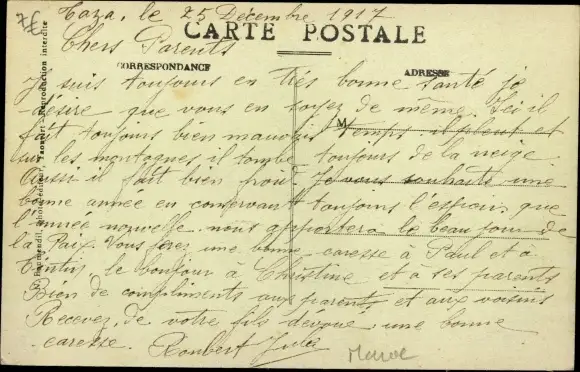 7€
Taza, le 25 Décembre 1917
CARTE POSTALE
Chers Parents
CORRESPONDANCE
ADRESSE
Je suis toujours en très bonne santé je
désire que vous en soyez de même. Ici il
M
fait toujours bien mauvais temps il pleut et
sur les montagnes il tombe toujours de la neige.
Aussi il fait bien froid. Je vous souhaite une
bonne année en conservant toujours l'espoir que
l'année nouvelle nous apportera le beau jour de
la Paix. Vous ferez une bonne caresse à Paul et a
le bonjour à Christine et à ses parents
Bien de compliments aux parents et aux voisins
Recevez de votre fils dévoué une bonne
caresse. Roubert Jules
Maroc
Reproduction interdite